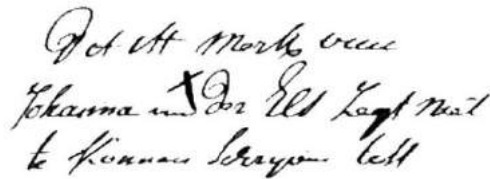 Dit itt merk van
Johanna van Der Elst Zegt niet
te konnen schryven test